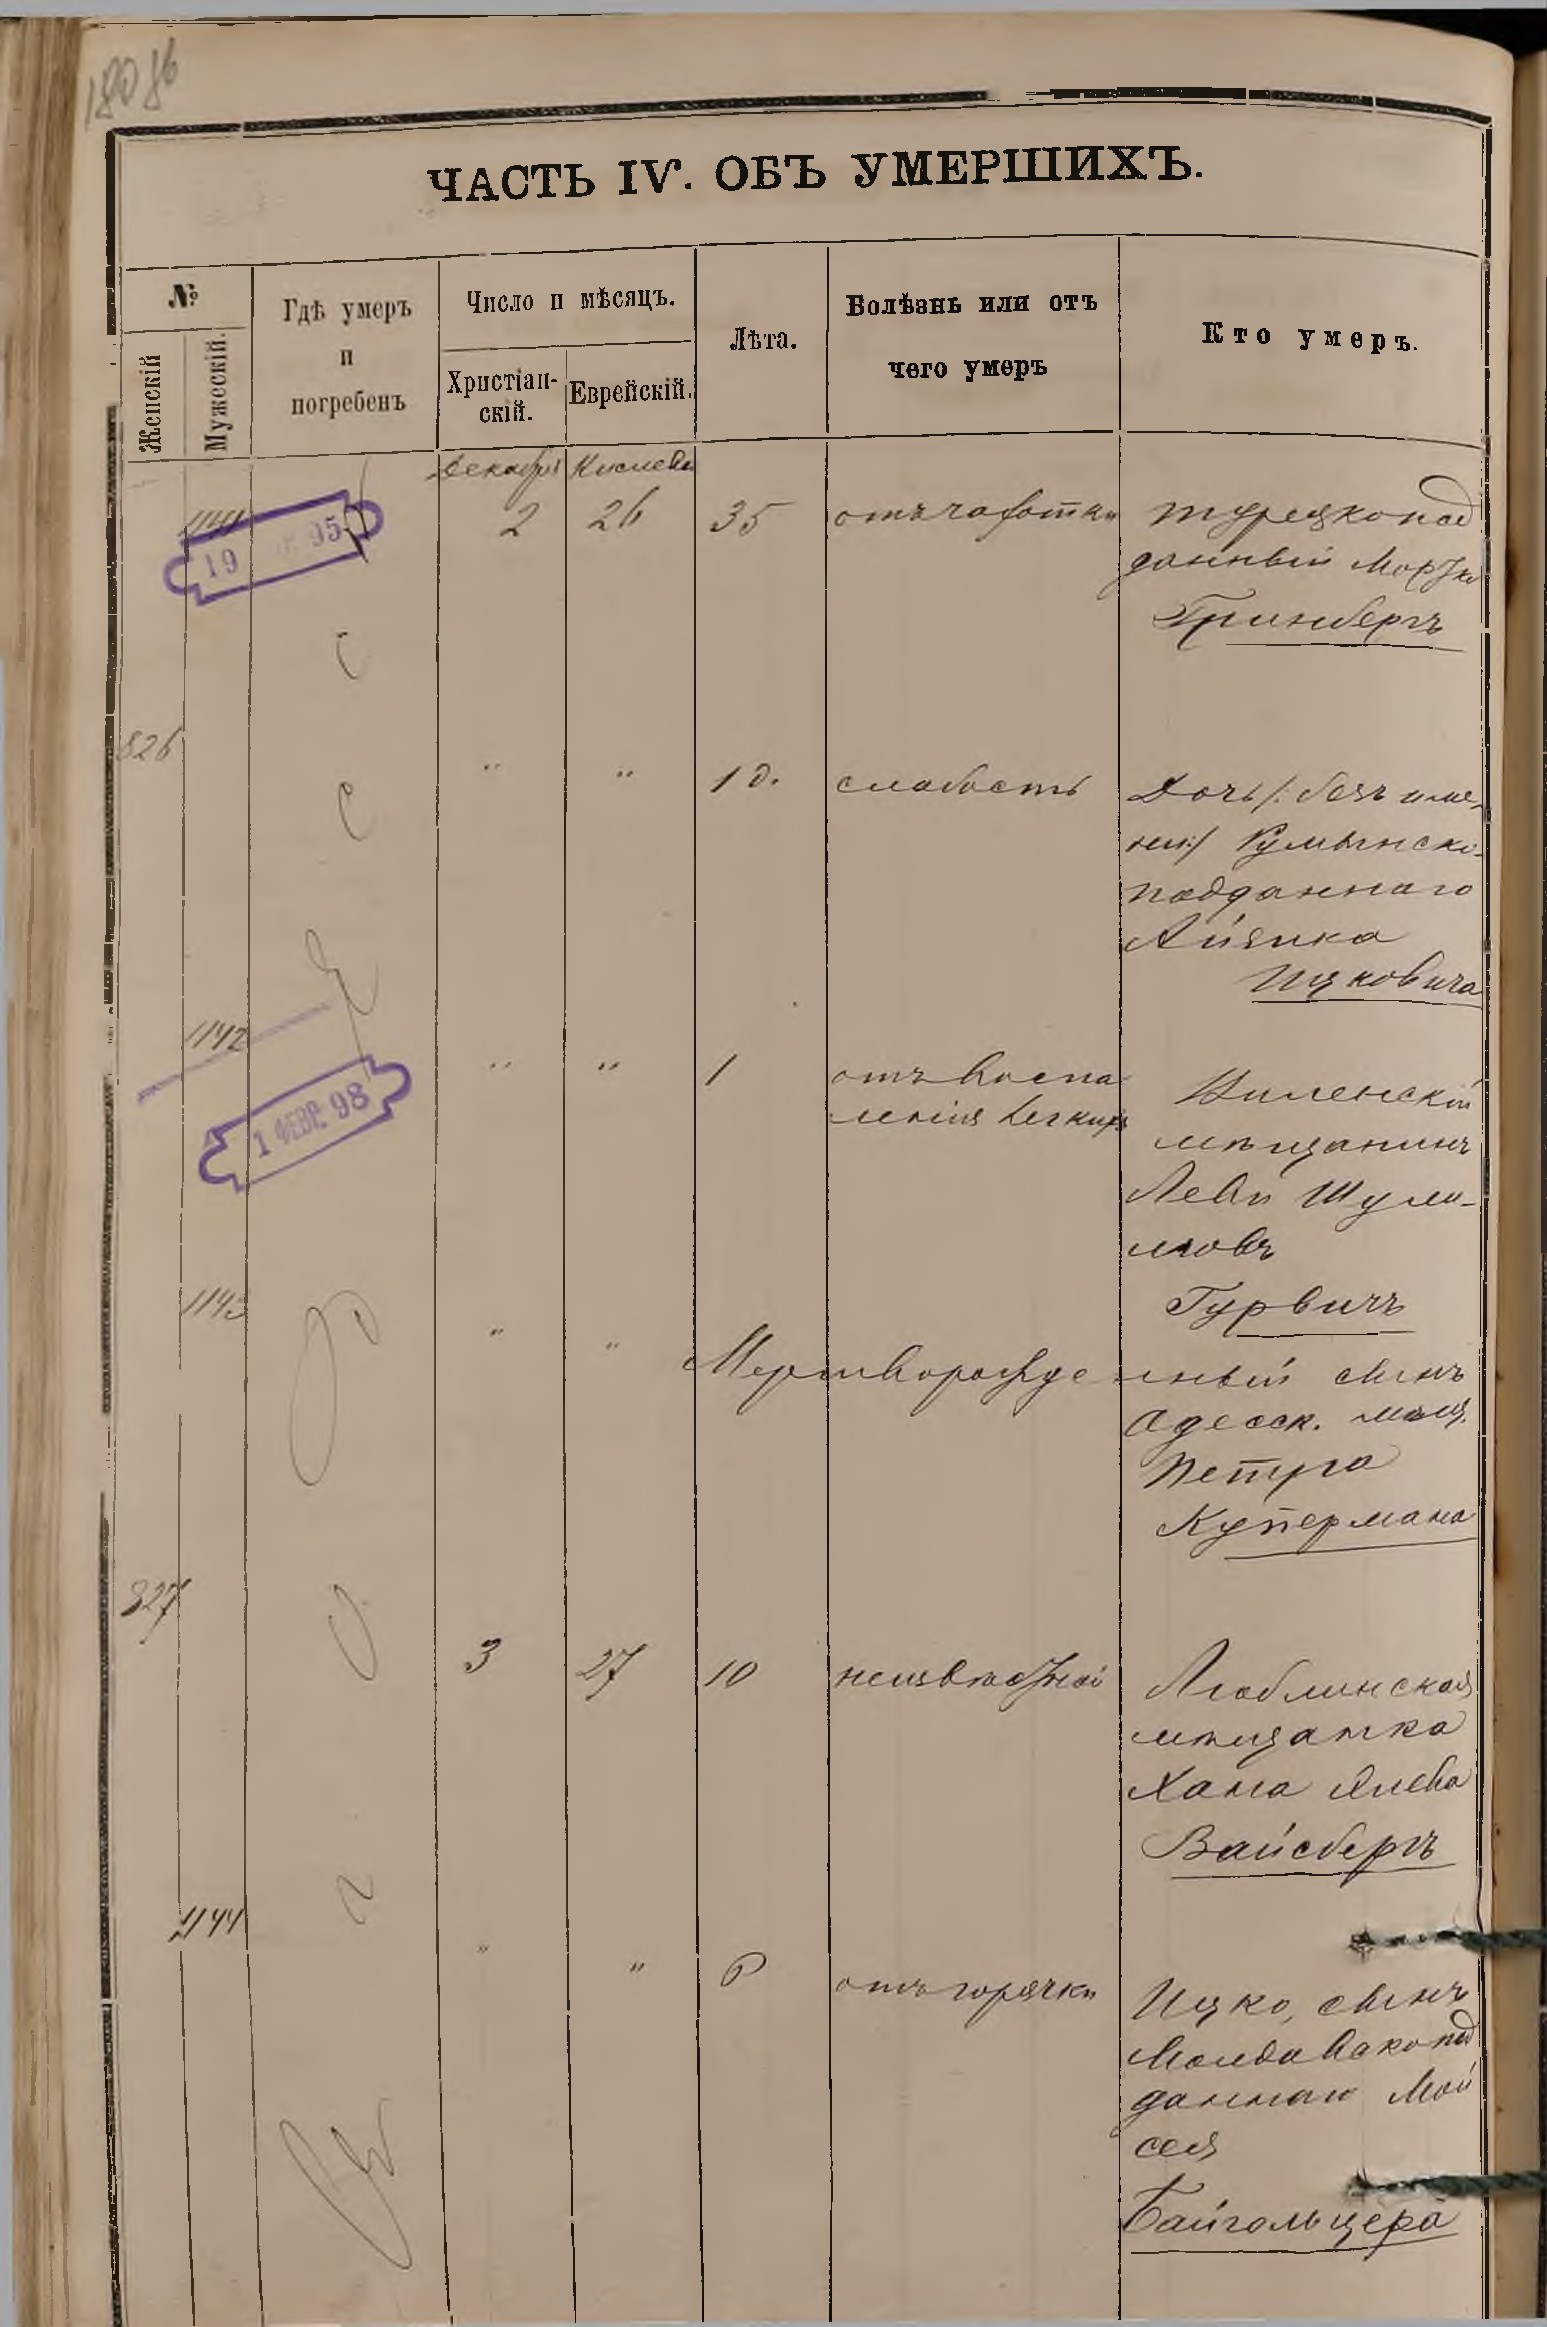 ЧАСТЬ IV. ОБЪ УМЕРШИХЪ.
№
Женскій
Мужескій.
Гдѣ умеръ
и
погребенъ
Число и мѣсяцъ.
Христіан-
скій.
Еврейскій.
Лѣта.
Болѣзнь или отъ
чего умеръ
Кто умеръ.
Декабря Кислева
1141 2 26 35 отъ чахотки турецкопод
данный Мошко
Гринбергъ
19 95
826 " " 1 д. слабость Дочь /: безъ име-
ни:/ Румынско-
подданнаго
Айзика
Ицковича
1142 " " 1 отъ воспа Виленскій
ленія легкихъ мѣщанинъ
1 ФЕВР. 98
Леви Шули-
мовъ
Гурвичъ
1143 " " Мертворожденный сынъ
Одесск. мѣщ.
Петра
Купермана
827 3 27 10 неизвѣстной Люблинская
мѣщанка
Хана
Вайсбергъ
1144 " " отъ горячки Ицко, сынъ
Молдавскопод
даннаго Мой
сея
Байгольцера
Одесса